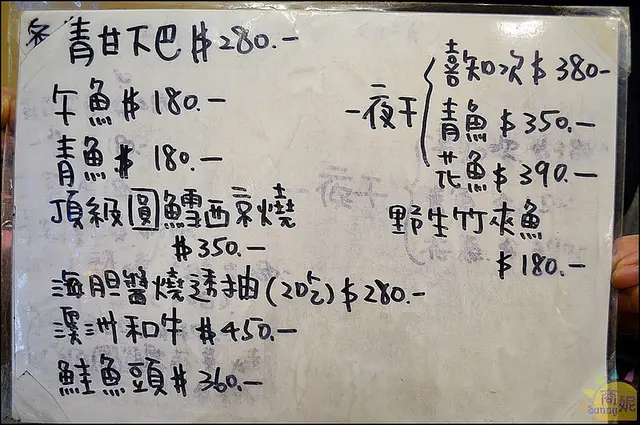 青甘下巴 $280.-
午魚 $180.-
青魚 $180.-
頂級圓鱈西京燒
$350.-
海胆醬燒透抽(20吃) $280.-
澳洲和牛 $450.-
鮭魚頭 $360.-
一夜干
喜知次 $380-
青魚 $350.-
花魚 $390.-
野生竹夾魚
$180.-
商妮
Sunny